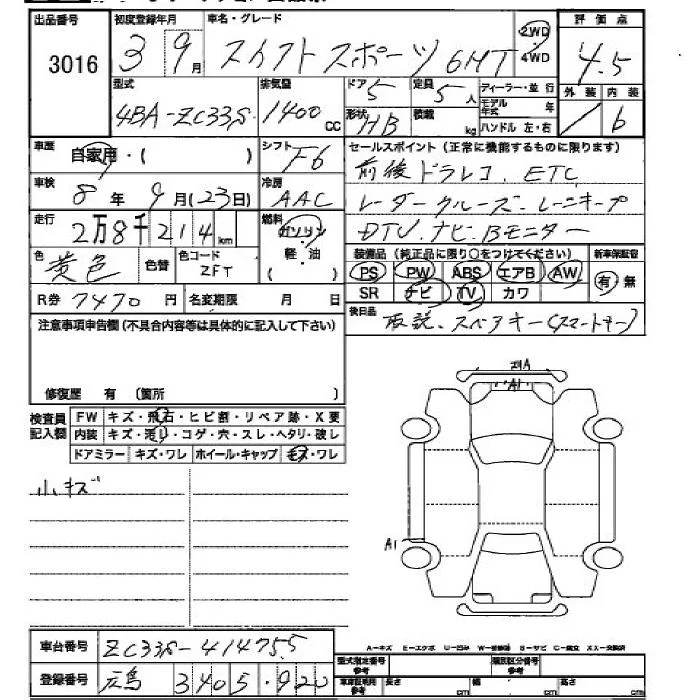 出品番号 3016
初度登録年月 3 9月
車名・グレード スイフトスポーツ 6MT
2WD 4WD
評価点 4.5
外装 内装 b
型式 4BA-ZC33S
排気量 1400 CC
ドア 5
定員 5人
形状 HB
積載 kg
ディーラー・並行
モデル年式 年
ハンドル 左・右
車歴 自家用・( )
シフト F6
セールスポイント(正常に機能するものに限ります)
前後ドラレコ、ETC
レーダークルーズ、レーンキープ
DTV、ナビ、Bモニター
車検 8年9月(23日)
冷房 AAC
走行 2万8千214km
燃料 ガソリン 軽・油 ( )
色 黄色 色替 色コード ZFT
装備品(純正品に限り○をつけてください) 新車保証書
PS PW ABS エアB AW 有・無
SR ナビ TV カワ
R券 7470円 名変期限 月 日
後日品 取説、スペアキー(スマートキー)
注意事項申告欄(不具合内容等は具体的に記入して下さい)
修復歴 有 (箇所 )
検査員記入欄
FW キズ・飛石・ヒビ割・リペア跡・X要
内装 キズ・汚れ・コゲ・穴・スレ・ヘタリ・破レ
ドアミラー キズ・ワレ ホイール・キャップ キズ・ワレ
小キズ
A1
A1
A-キズ E-エクボ U-凹み W-補修跡 S-サビ C-腐立 XX-交換済
車台番号 ZC33S-414755
登録番号 広島 340 5 920
型式指定番号 参考
類別区分番号 参考
車庫証明用 参考 長さ cm 幅 cm 高さ cm